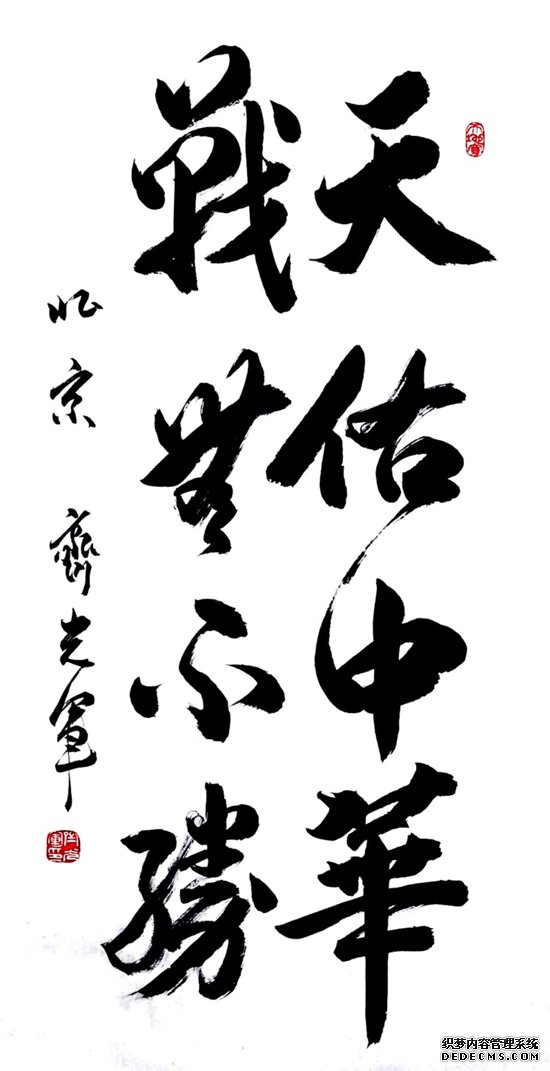 天佑中華
戰無不勝
北京 齊光軍
织梦内容管理系统
DEDECMS.COM